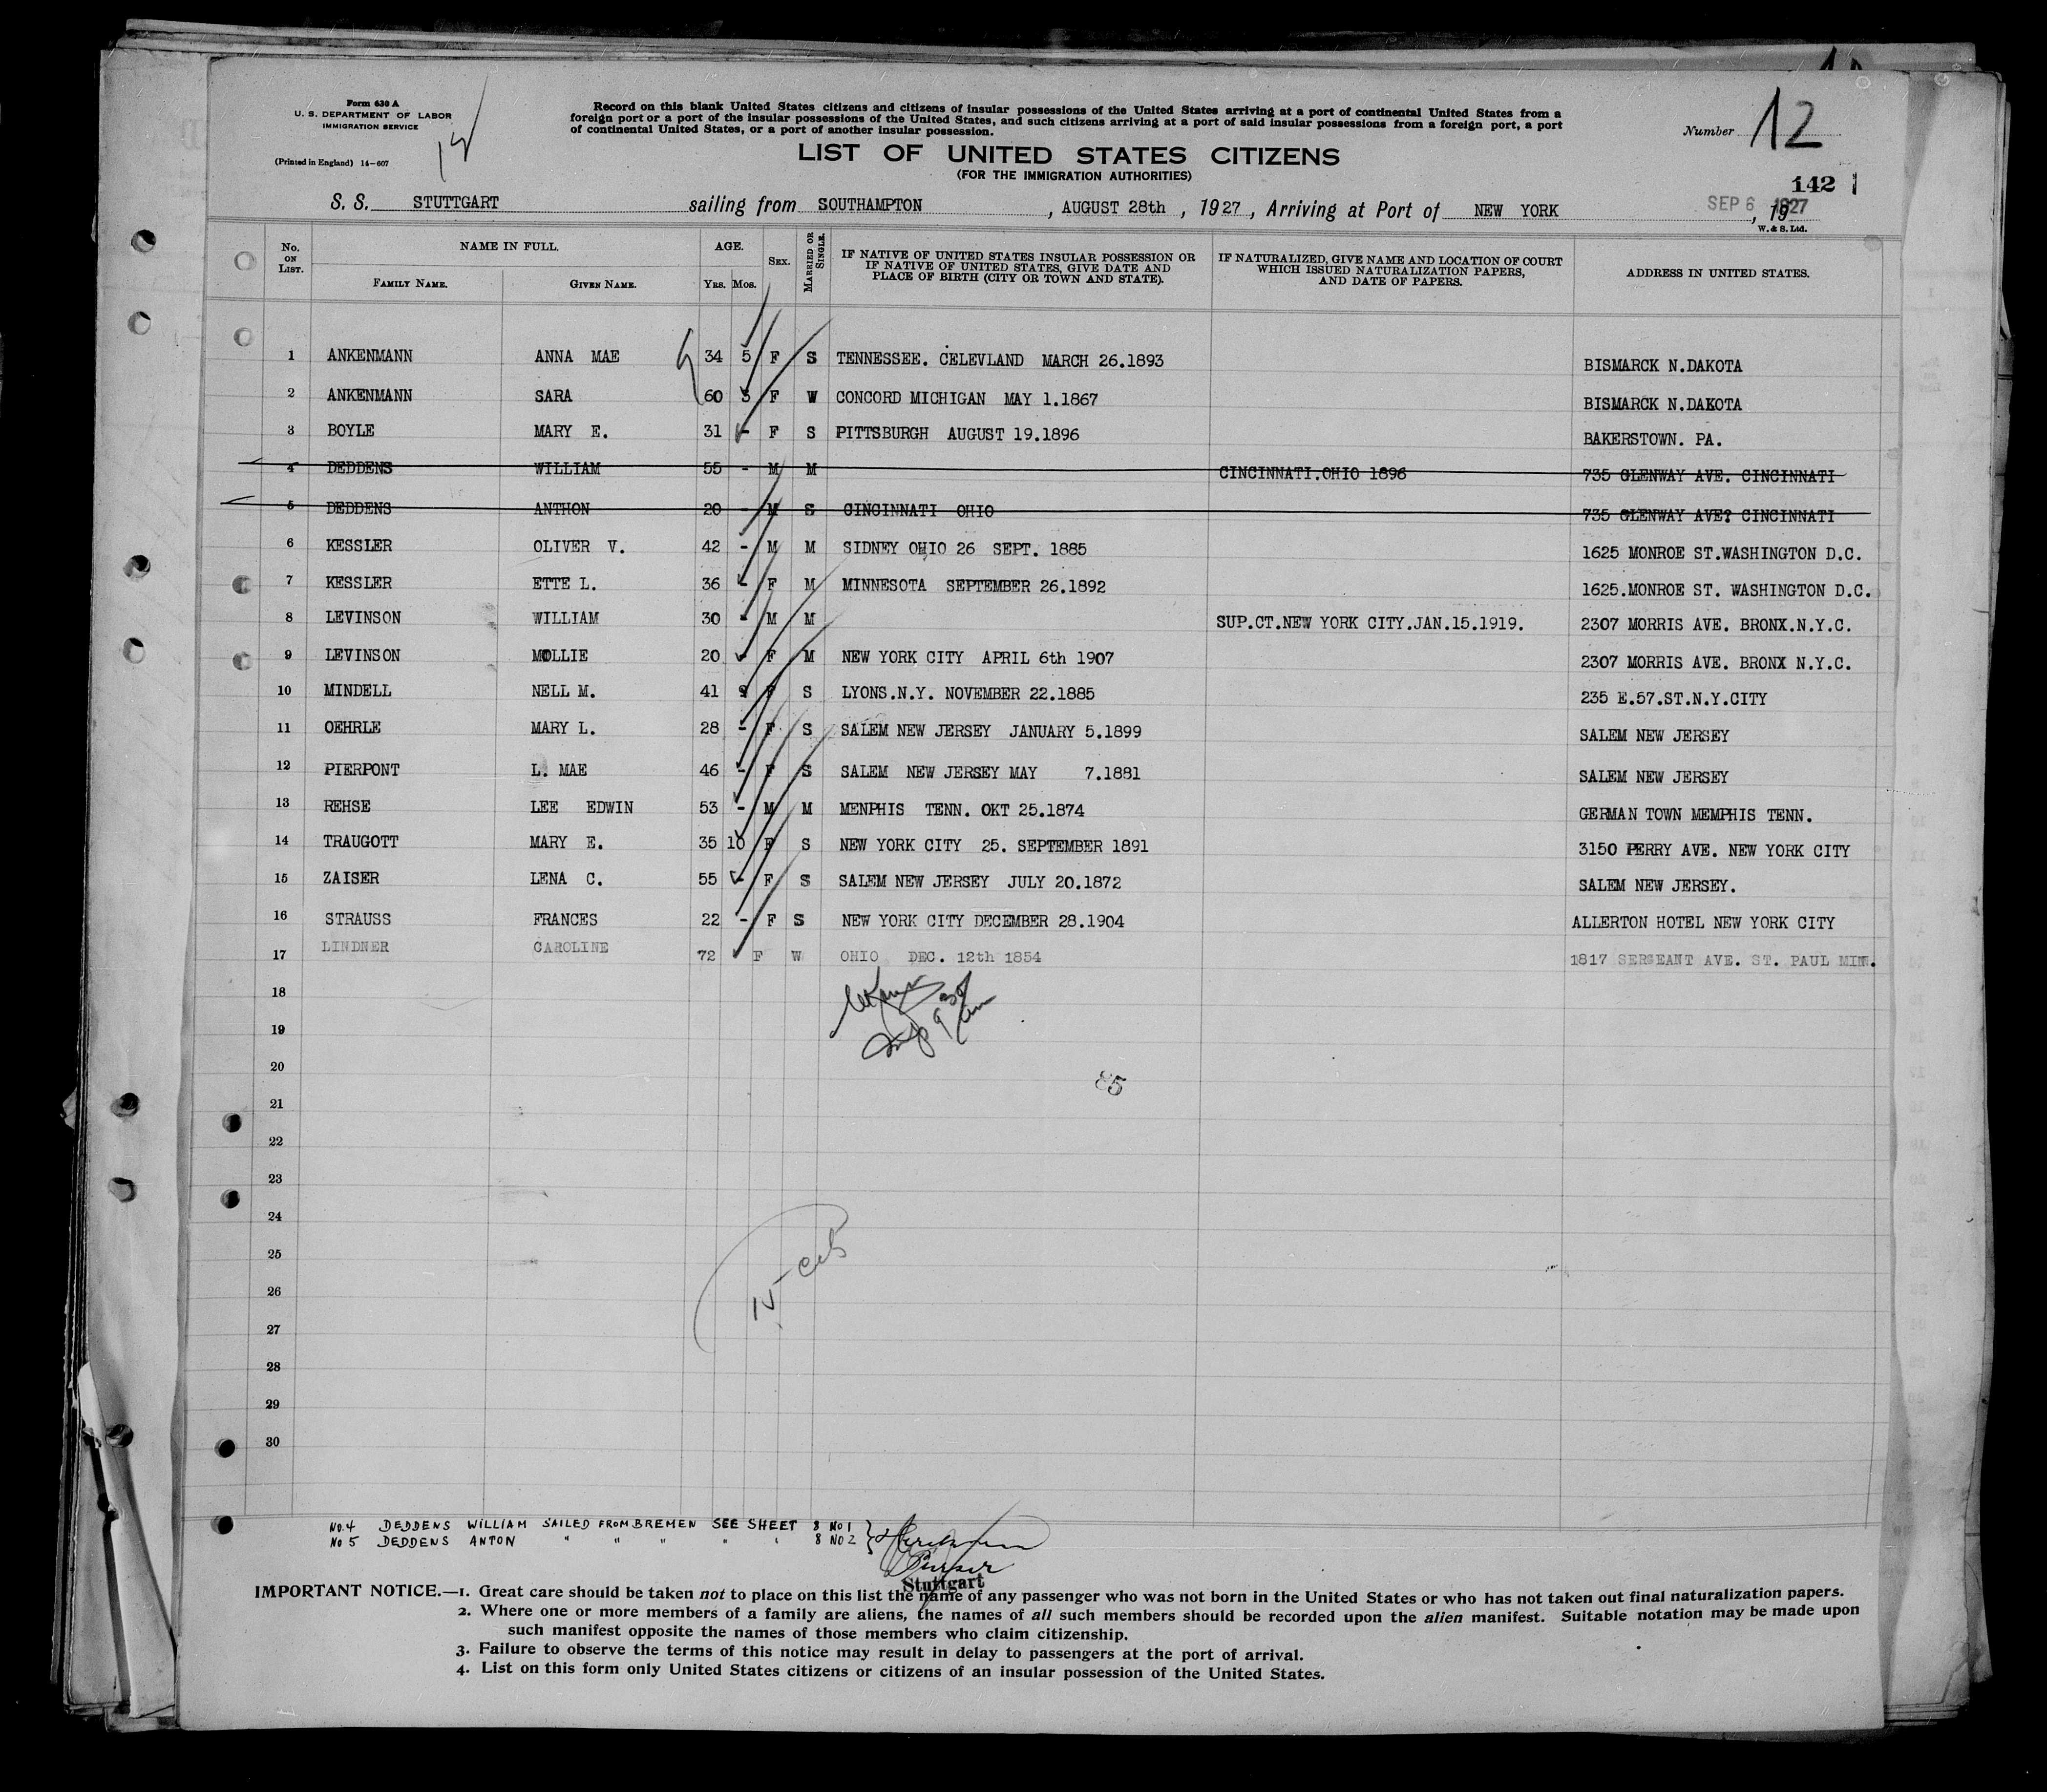 Form 630 A
U. S. DEPARTMENT OF LABOR
IMMIGRATION SERVICE
(Printed in England) 14-607
Record on this blank United States citizens and citizens of insular possessions of the United States arriving at a port of continental United States from a
foreign port or a port of the insular possessions of the United States, and such citizens arriving at a port of said insular possessions from a foreign port, a port
of continental United States, or a port of another insular possession.
Number 12
LIST OF UNITED STATES CITIZENS
(FOR THE IMMIGRATION AUTHORITIES)
142
S. S. STUTTGART sailing from SOUTHAMPTON, AUGUST 28th, 1927, Arriving at Port of NEW YORK SEP 6 1927, 19
W. & S. Ltd.
No. ON LIST. NAME IN FULL. AGE. SEX. MARRIED OR SINGLE. IF NATIVE OF UNITED STATES INSULAR POSSESSION OR IF NATIVE OF UNITED STATES, GIVE DATE AND PLACE OF BIRTH (CITY OR TOWN AND STATE). IF NATURALIZED, GIVE NAME AND LOCATION OF COURT WHICH ISSUED NATURALIZATION PAPERS, AND DATE OF PAPERS. ADDRESS IN UNITED STATES.
FAMILY NAME. GIVEN NAME. YRS. MOS.
1 ANKENMANN ANNA MAE 34 5 F S TENNESSEE. CELEVLAND MARCH 26.1893 BISMARCK N.DAKOTA
2 ANKENMANN SARA 60 3 F W CONCORD MICHIGAN MAY 1.1867 BISMARCK N.DAKOTA
3 BOYLE MARY E. 31 - F S PITTSBURGH AUGUST 19.1896 BAKERSTOWN. PA.
4 DEDDENS WILLIAM 55 - M M CINCINNATI.OHIO 1896 735 GLENWAY AVE. CINCINNATI
5 DEDDENS ANTHON 20 - M S CINCINNATI OHIO 735 GLENWAY AVE? CINCINNATI
6 KESSLER OLIVER V. 42 - M M SIDNEY OHIO 26 SEPT. 1885 1625 MONROE ST.WASHINGTON D.C.
7 KESSLER ETTE L. 36 - F M MINNESOTA SEPTEMBER 26.1892 1625.MONROE ST. WASHINGTON D.C.
8 LEVINSON WILLIAM 30 - M M SUP.CT.NEW YORK CITY.JAN.15.1919. 2307 MORRIS AVE. BRONX.N.Y.C.
9 LEVINSON MOLLIE 20 - F M NEW YORK CITY APRIL 6th 1907 2307 MORRIS AVE. BRONX N.Y.C.
10 MINDELL NELL M. 41 9 F S LYONS.N.Y. NOVEMBER 22.1885 235 E.57.ST.N.Y.CITY
11 OEHRLE MARY L. 28 - F S SALEM NEW JERSEY JANUARY 5.1899 SALEM NEW JERSEY
12 PIERPONT L. MAE 46 - F S SALEM NEW JERSEY MAY 7.1881 SALEM NEW JERSEY
13 REHSE LEE EDWIN 53 - M M MENPHIS TENN. OKT 25.1874 GERMAN TOWN MEMPHIS TENN.
14 TRAUGOTT MARY E. 35 10 F S NEW YORK CITY 25. SEPTEMBER 1891 3150 PERRY AVE. NEW YORK CITY
15 ZAISER LENA C. 55 - F S SALEM NEW JERSEY JULY 20.1872 SALEM NEW JERSEY.
16 STRAUSS FRANCES 22 - F S NEW YORK CITY DECEMBER 28.1904 ALLERTON HOTEL NEW YORK CITY
17 LINDNER CAROLINE 72 F W OHIO DEC. 12th 1854 1817 SERGEANT AVE. ST. PAUL MINN.
18
19
20
85
21
22
23
24
25
26
27
28
29
30
No.4 DEDDENS WILLIAM SAILED FROM BREMEN SEE SHEET 8 NO 1
No 5 DEDDENS ANTON " " " " " 8 NO 2
Purser
Stuttgart
IMPORTANT NOTICE.—1. Great care should be taken not to place on this list the name of any passenger who was not born in the United States or who has not taken out final naturalization papers.
2. Where one or more members of a family are aliens, the names of all such members should be recorded upon the alien manifest. Suitable notation may be made upon
such manifest opposite the names of those members who claim citizenship.
3. Failure to observe the terms of this notice may result in delay to passengers at the port of arrival.
4. List on this form only United States citizens or citizens of an insular possession of the United States.